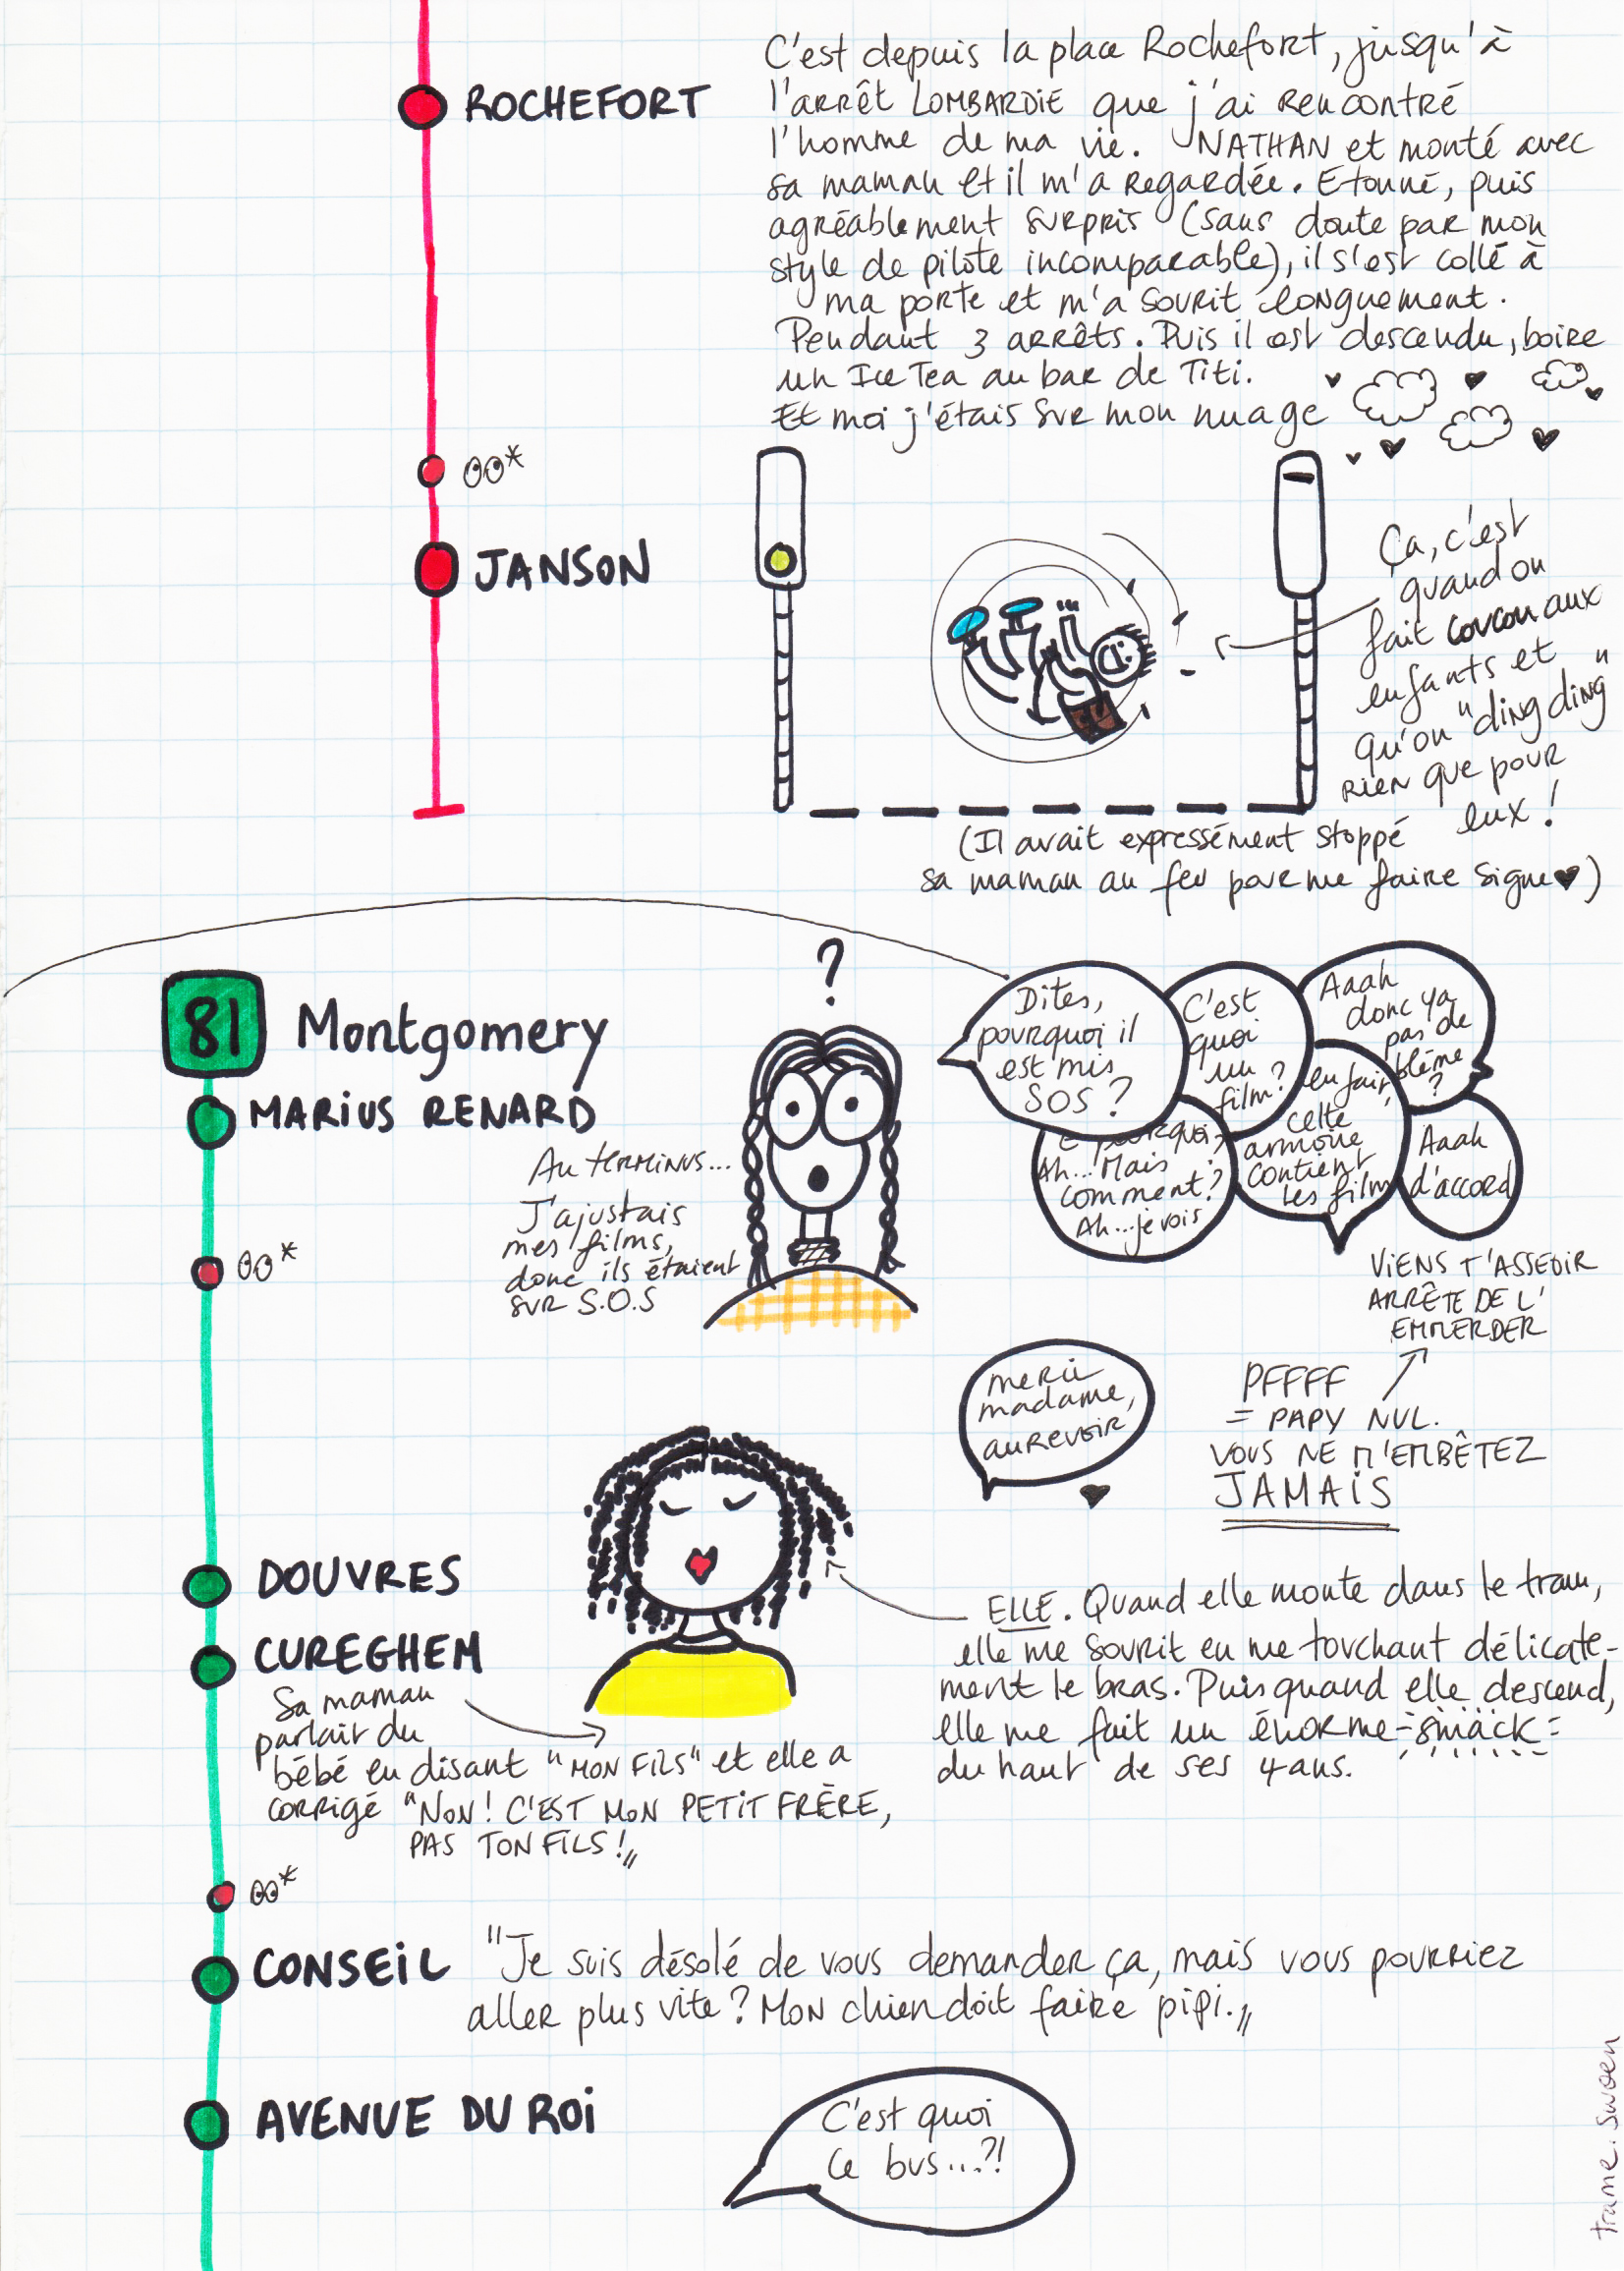 ROCHEFORT
C'est depuis la place Rochefort, jusqu'à
l'arrêt LOMBARDIE que j'ai rencontré
l'homme de ma vie. NATHAN et monté avec
sa maman et il m'a regardée. Etonné, puis
agréablement surpris (sans doute par mon
style de pilote incomparable), il s'est collé à
ma porte et m'a sourit longuement.
Pendant 3 arrêts. Puis il est descendu, boire
un Ice Tea au bar de Titi.
Et moi j'étais sur mon nuage
JANSON
Ça, c'est
quand on
fait coucou aux
enfants et
qu'on "ding ding"
rien que pour
eux !
(Il avait expressément stoppé
sa maman au feu pour me faire signe ♥)
81 Montgomery
MARIUS RENARD
Au terminus...
J'ajustais
mes films,
donc ils étaient
sur S.O.S
?
Dites,
pourquoi il
est mis
SOS ?
C'est
quoi
un
film ?
Aaah
donc ya
pas de
blème
?
pourquoi ?
Ah... Mais
comment ?
Ah... je vois
en fait,
cette
armoire
contient
les films
Aaah
d'accord
VIENS T'ASSEOIR
ARRÊTE DE L'
EMMERDER
PFFFF
= PAPY NUL.
VOUS NE M'EMBÊTEZ
JAMAIS
merci
madame,
au revoir
DOUVRES
CUREGHEM
ELLE. Quand elle monte dans le tram,
elle me sourit en me touchant délicate-
ment le bras. Puis quand elle descend,
elle me fait un énorme smack
du haut de ses 4 ans.
Sa maman
parlait du
bébé en disant "MON FILS" et elle a
corrigé "NON ! C'EST MON PETIT FRÈRE,
PAS TON FILS !"
CONSEIL
"Je suis désolé de vous demander ça, mais vous pourriez
aller plus vite ? Mon chien doit faire pipi."
AVENUE DU ROI
C'est quoi
ce bus...?!
trame.swoen